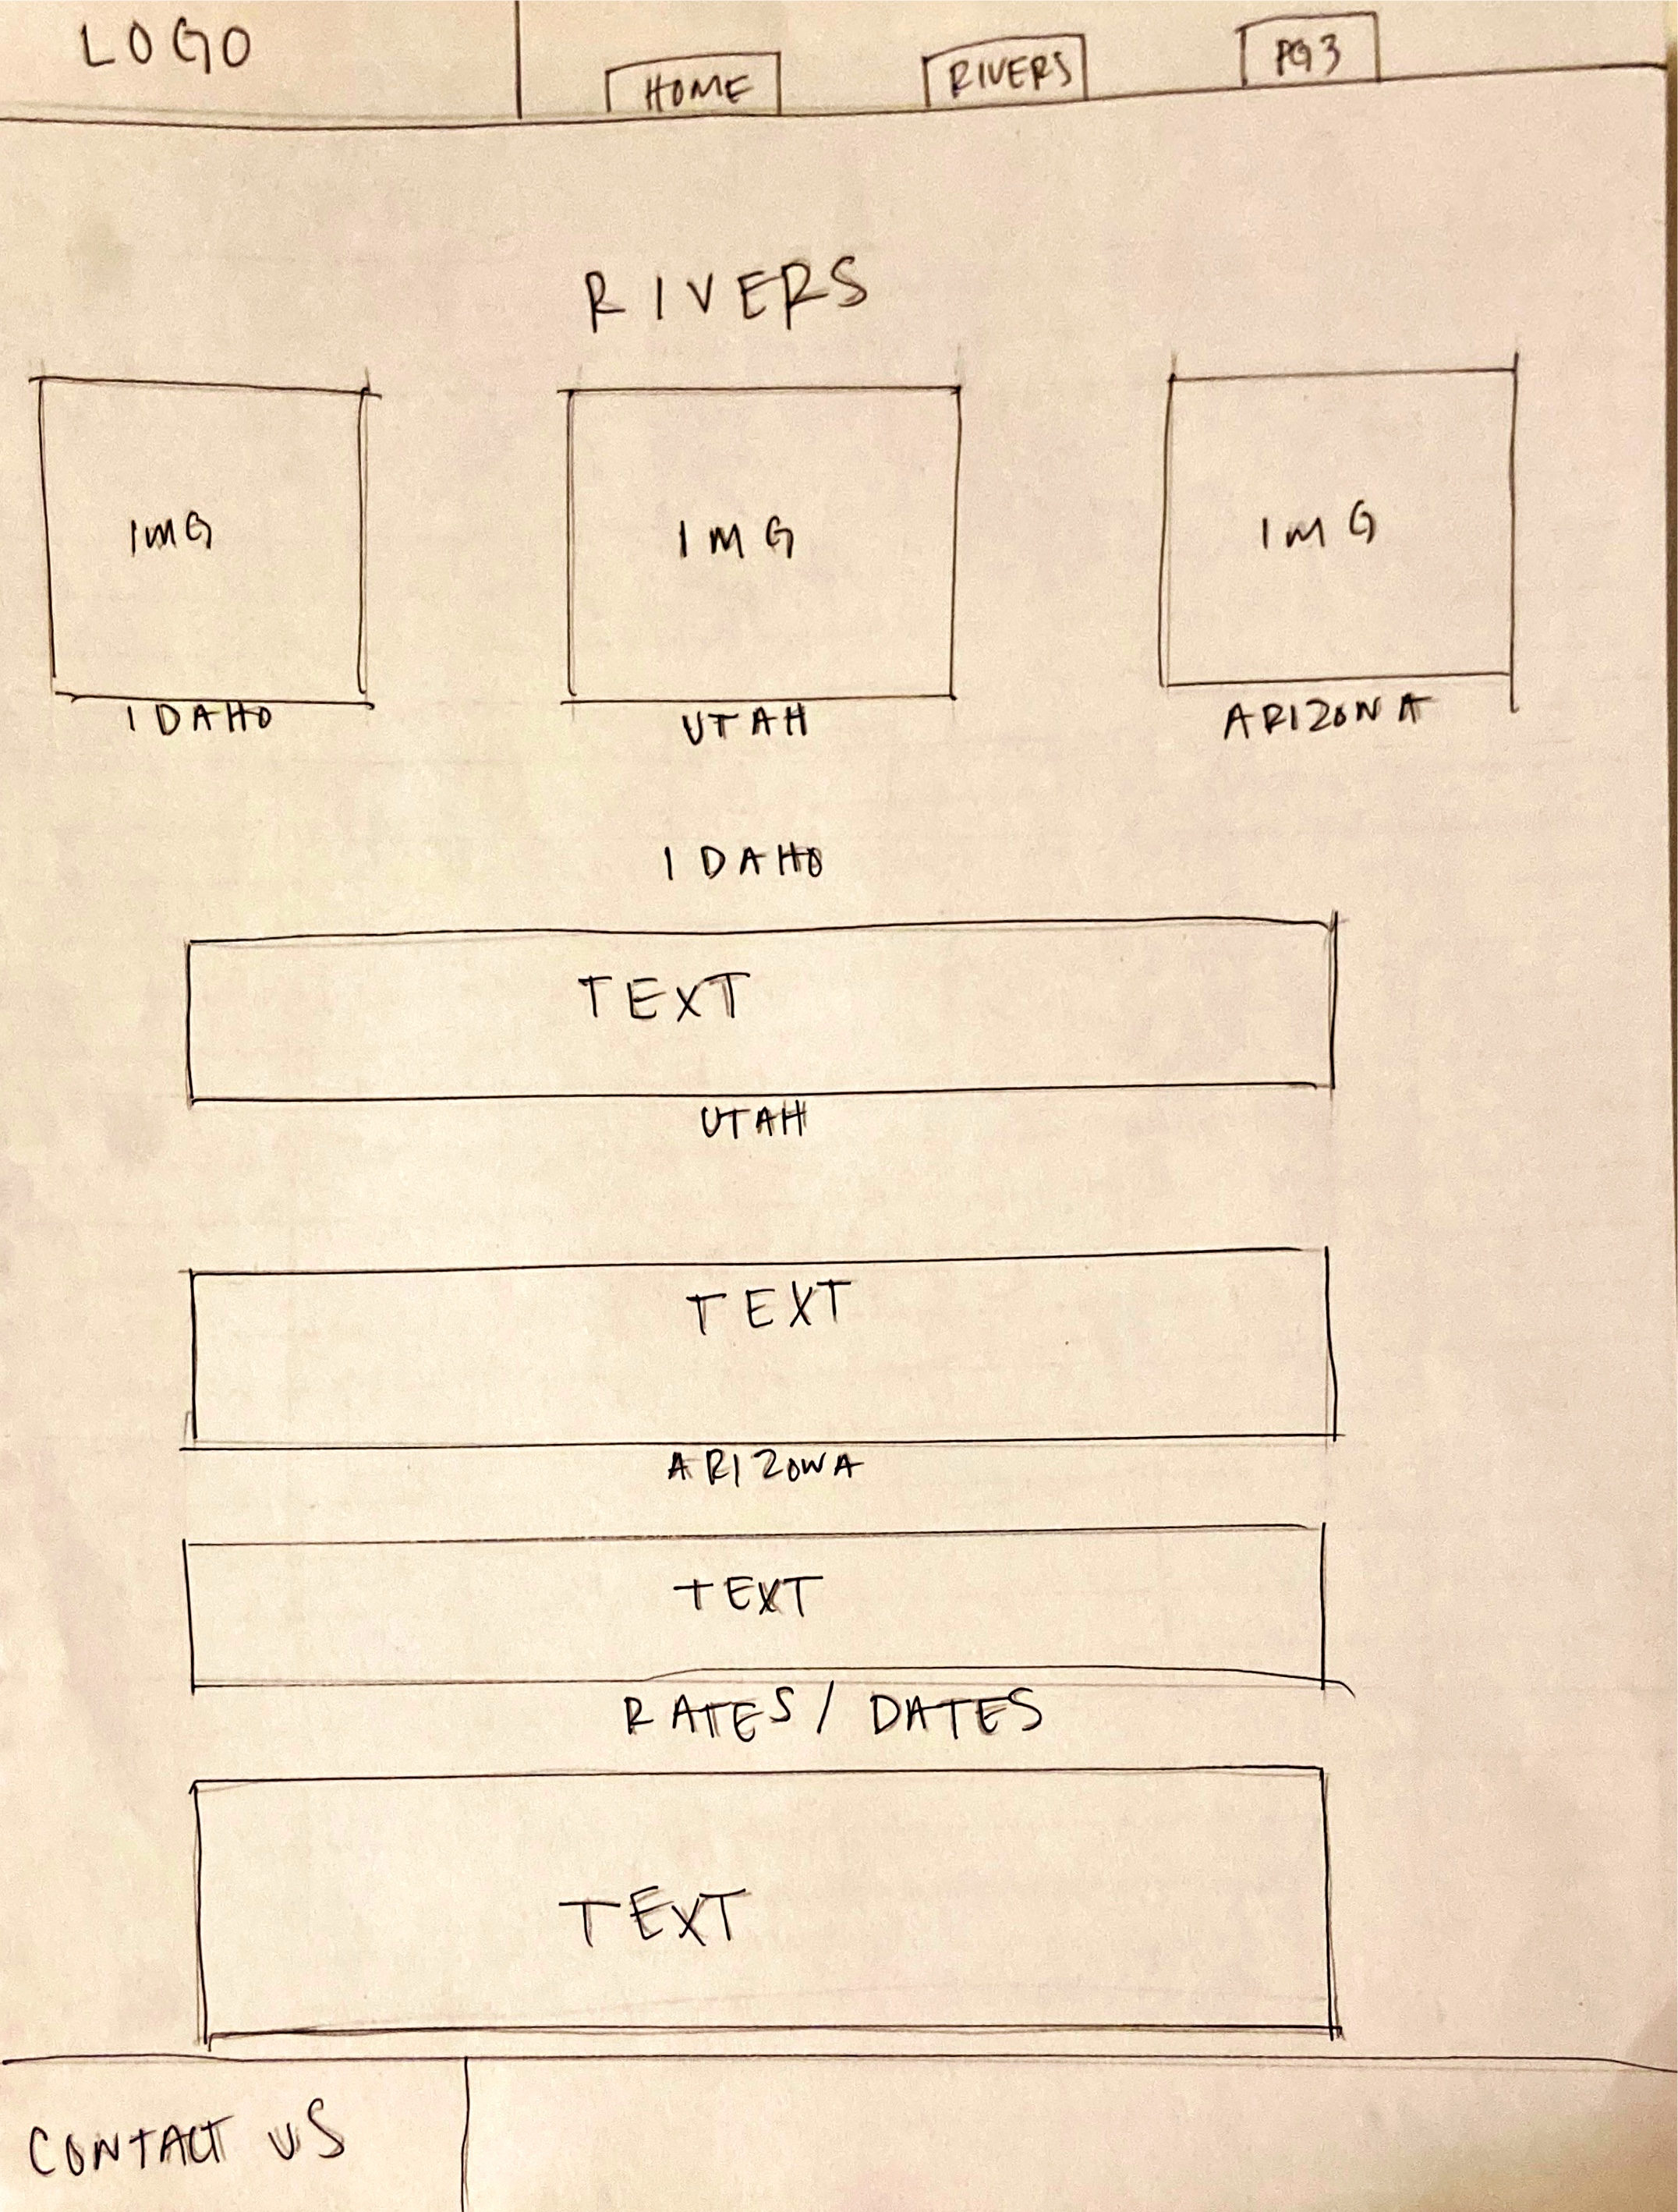 LOGO
HOME RIVERS PG3
RIVERS
IMG IMG IMG
IDAHO UTAH ARIZONA
IDAHO
TEXT
UTAH
TEXT
ARIZONA
TEXT
RATES / DATES
TEXT
CONTACT US